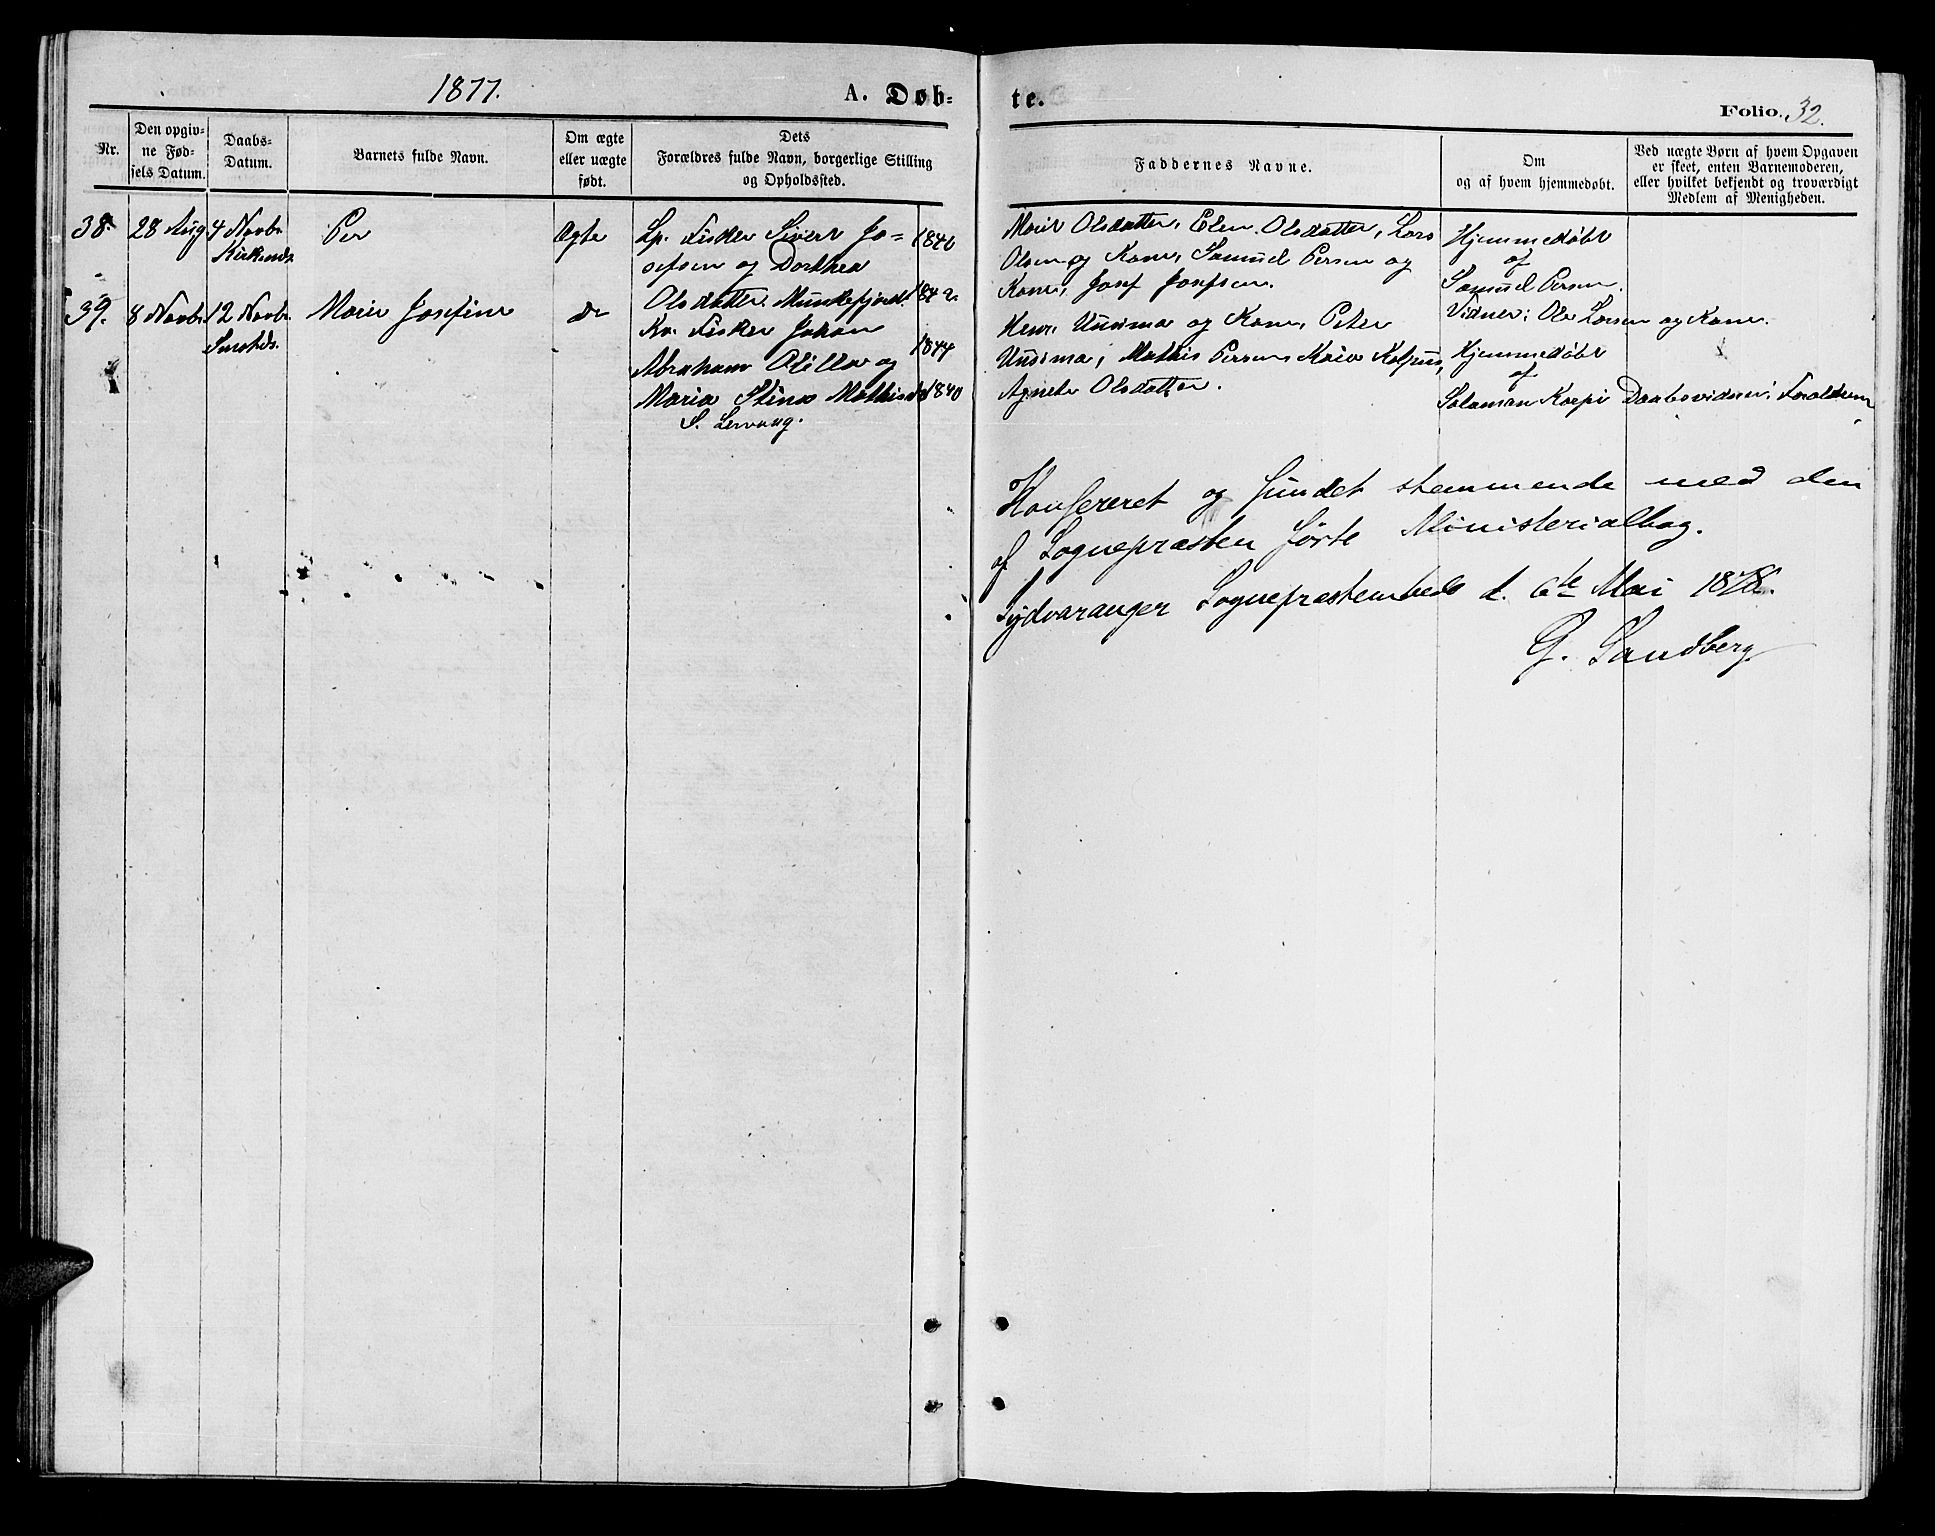 1877.
A. Døb-
te.
Folio. 32.
Nr.
Den opgiv-
ne Fød-
sels Datum.
Daabs-
Datum.
Barnets fulde Navn.
Om ægte
eller uægte
født.
Dets
Forældres fulde Navn, borgerlige Stilling
og Opholdssted.
Faddernes Navne.
Om
og af hvem hjemmedøbt.
Ved uægte Børn af hvem Opgaven
er skeet, enten Barnemoderen,
eller hvilket bekjendt og troværdigt
Medlem af Menigheden.
38.
28 Aug
4 Novbr
Kirkenes
Per
Ægte
Lp. Fisker Sivert Jo=
sefsen og Dorthea
Olsdatter. Munkefjord.
1840
1842
Marit Olsdatter, Elen Olsdatter, Lars
Olsen og Kone, Samuel Persen og
Kone, Josef Josefsen.
Hjemmedøbt
af
Samuel Persen.
Vidner: Ole Larsen og Kone.
39.
8 Novbr.
12 Novbr.
Marie Josefine
do
Kv. Fisker Johan
Abraham og
Maria Stina Mathisd
S. Lervaag.
1844
1840
Henr. Uusima og Kone, Peter
Uusima, Mathis Persen,
Agnete Olsdatter.
Hjemmedøbt
af
Salaman Korpi Daabsvidner: Forældrene
Konfereret og fundet stemmende med den
af Sognepræsten førte Ministerialbog.
Sydvaranger Sognepræstembede d. 6te Mai 1878.
G. Sandberg